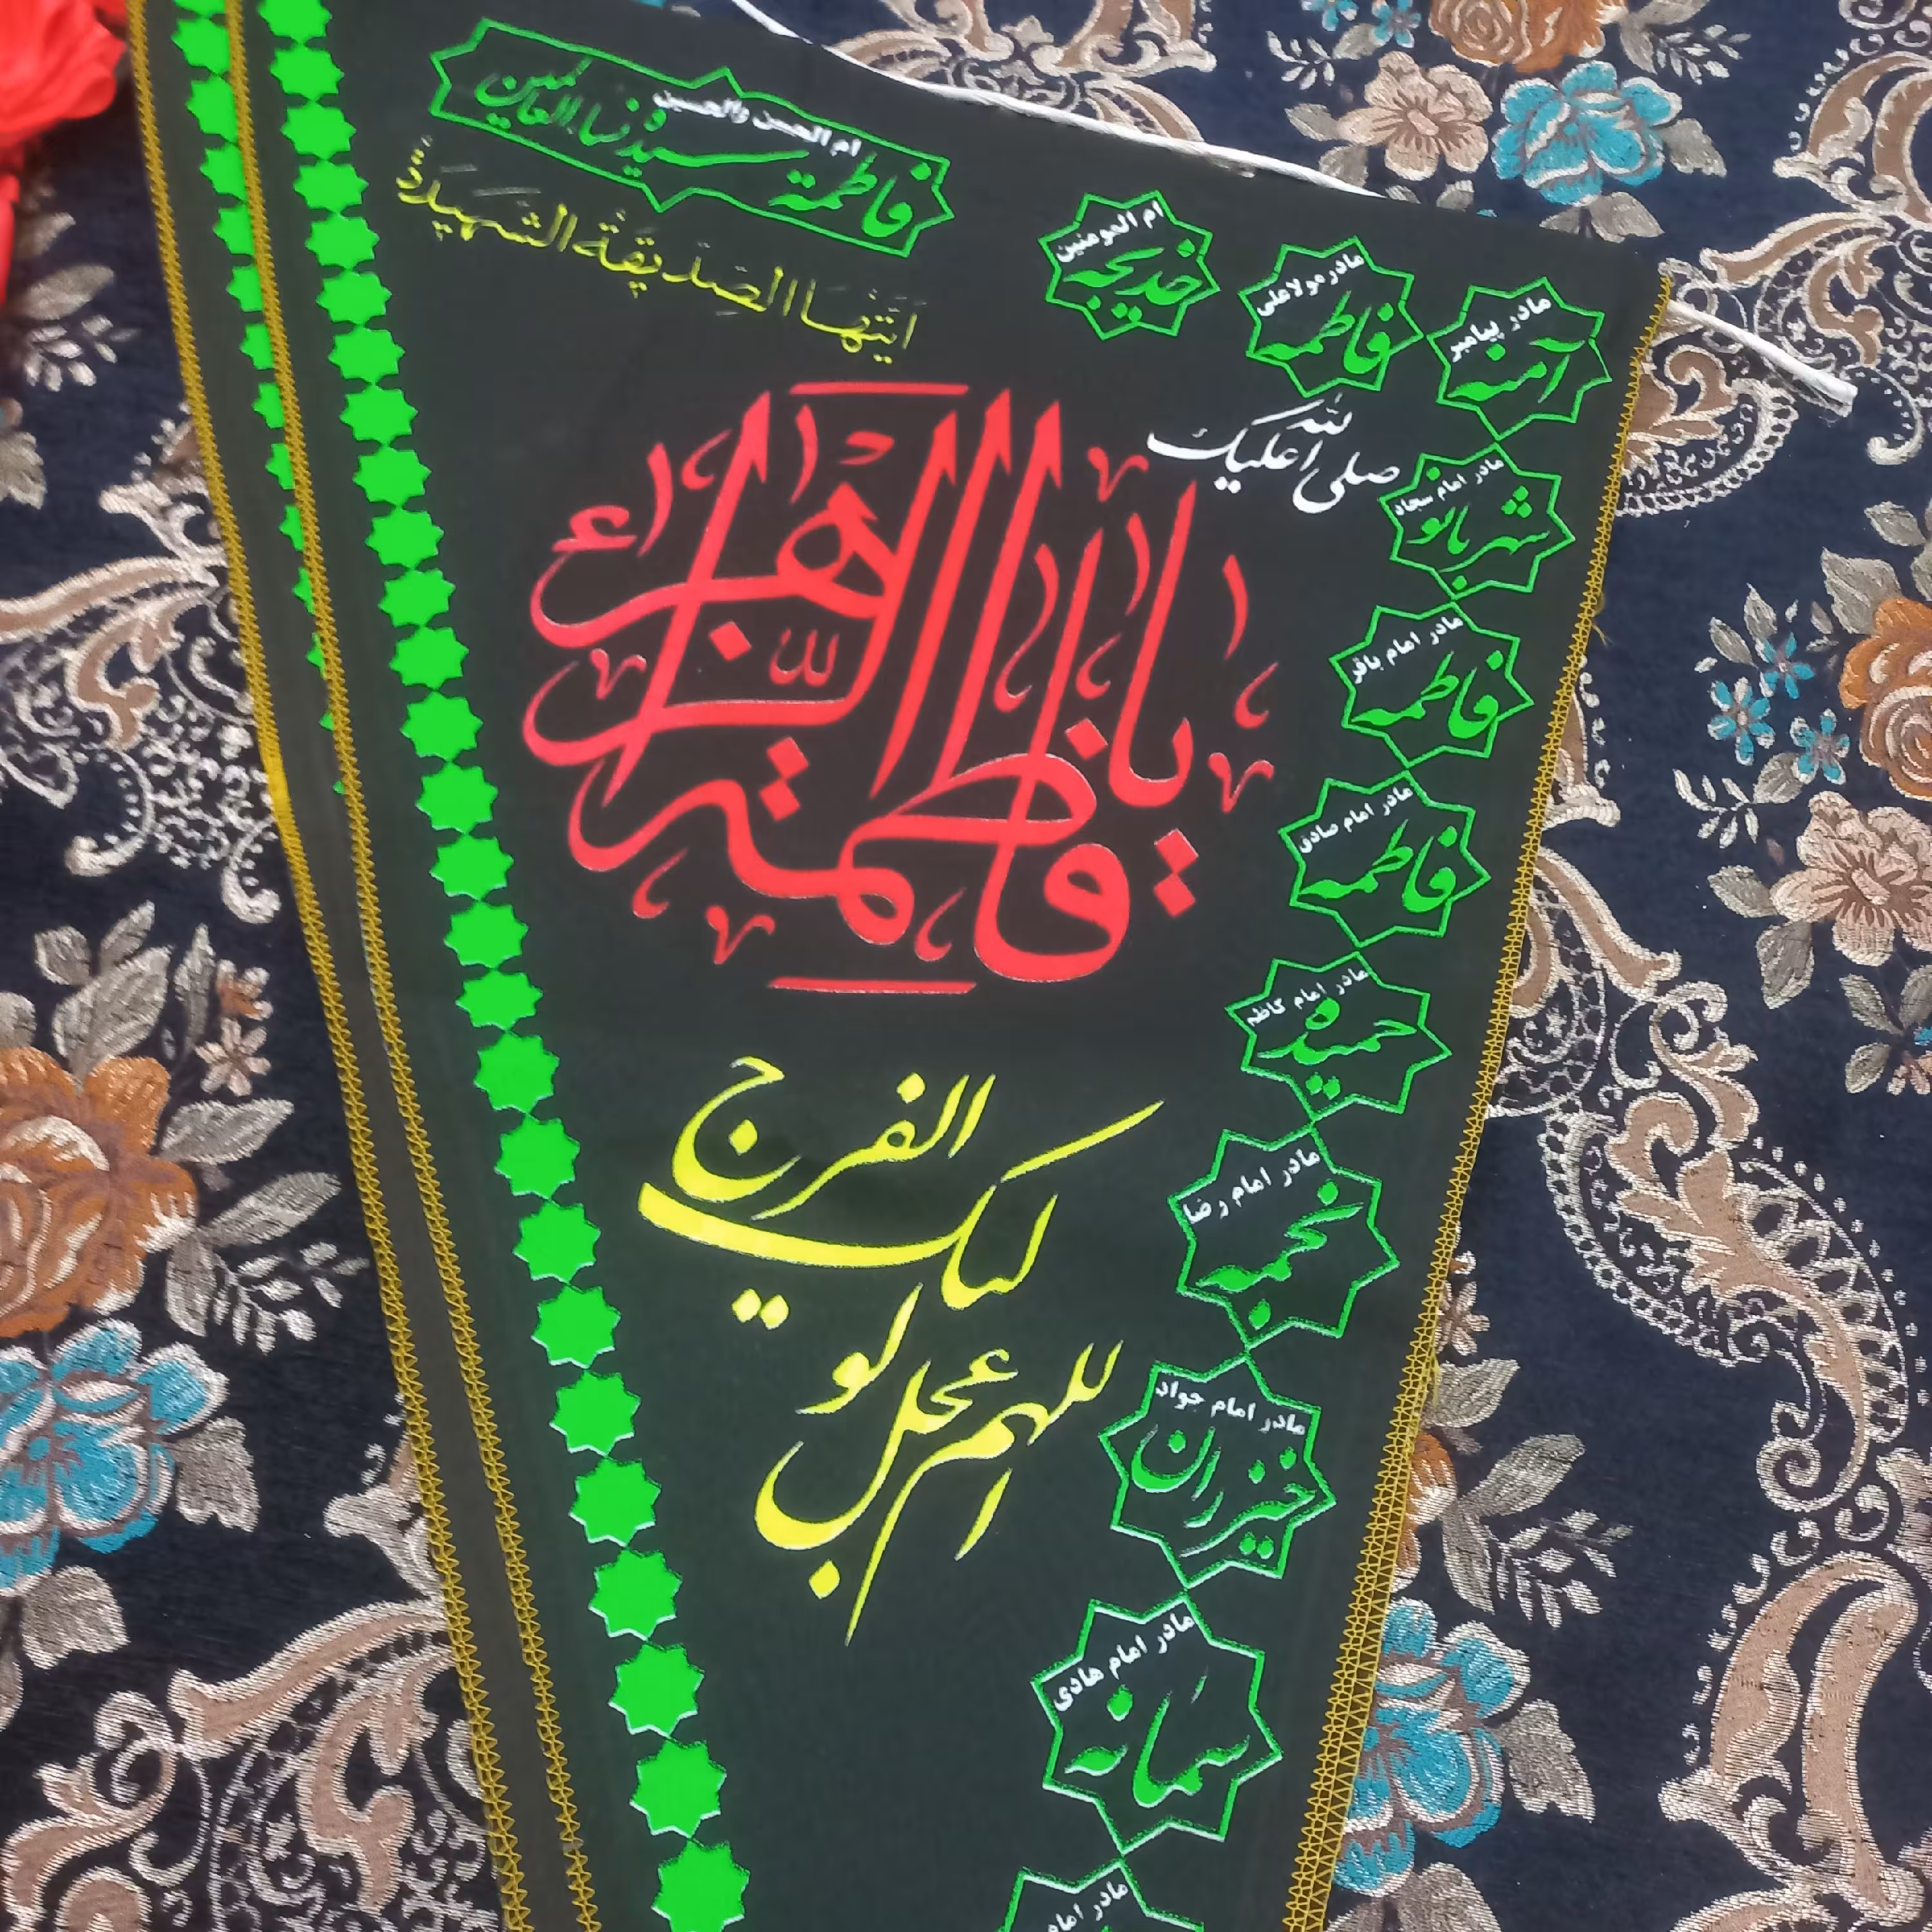 ام الحسن والحسین
فاطمة سیدة نساء العالمین
ام المومنین
خدیجه
مادر مولا علی
فاطمه
مادر پیامبر
آمنه
صلی الله علیک
ایتها الصدیقة الشهیدة
یا فاطمة الزهراء
لله
مادر امام سجاد
شهربانو
مادر امام باقر
فاطمه
مادر امام صادق
فاطمه
مادر امام کاظم
حمیده
مادر امام رضا
نجمه
مادر امام جواد
خیزران
مادر امام هادی
سمانه
مادر امام
اللهم عجل لولیک الفرج